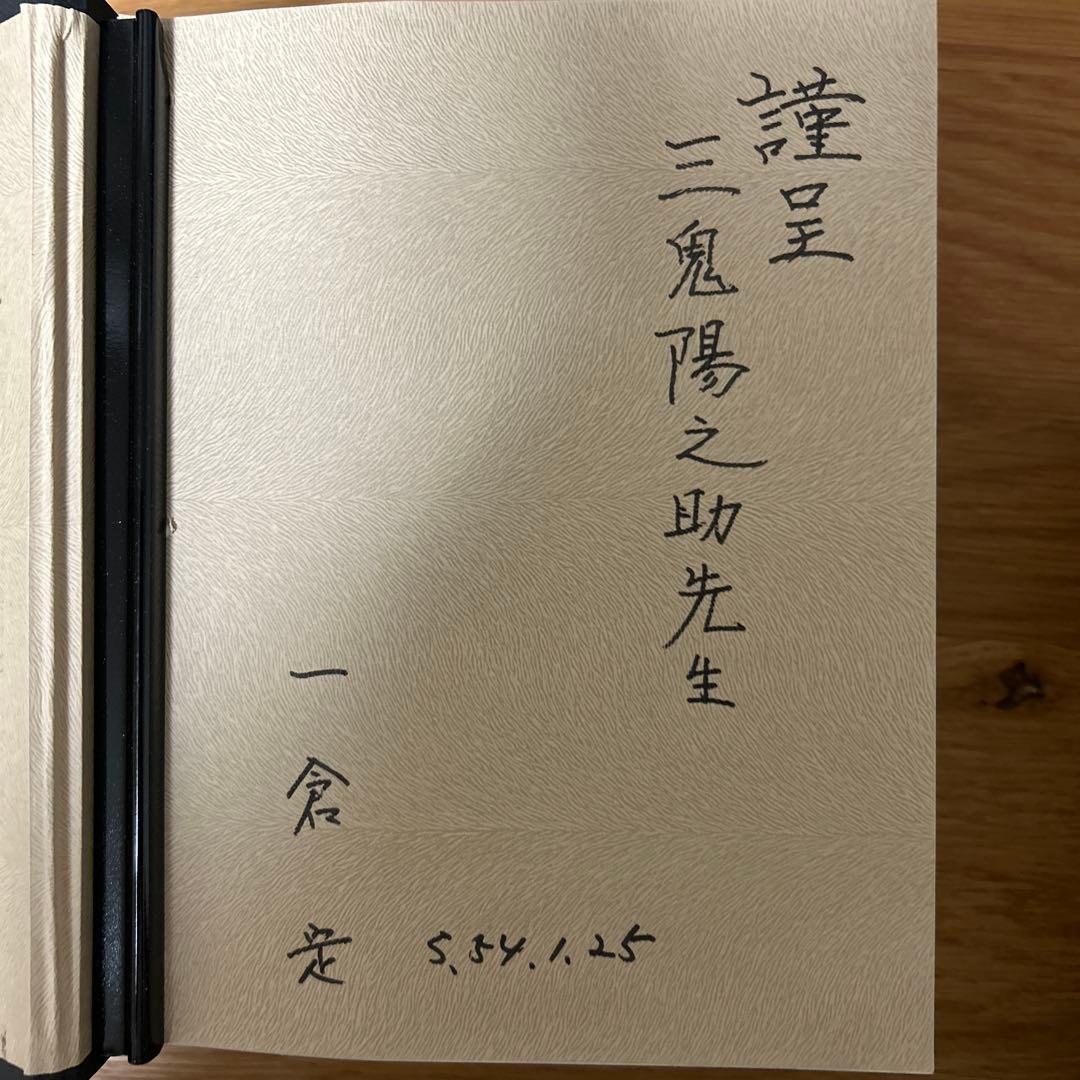 謹呈
三鬼陽之助先生
一倉定
S.54.1.25